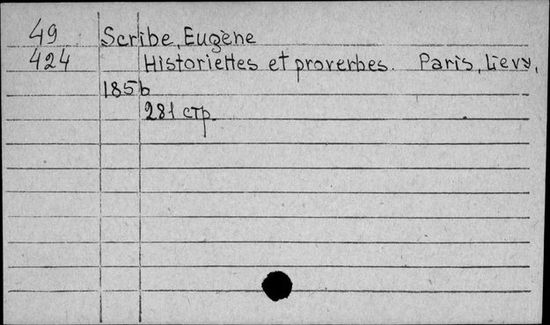 49 Scribe, Eugène
424 Historiettes et proverbes. Paris, Lievy,
1856
281 стр.